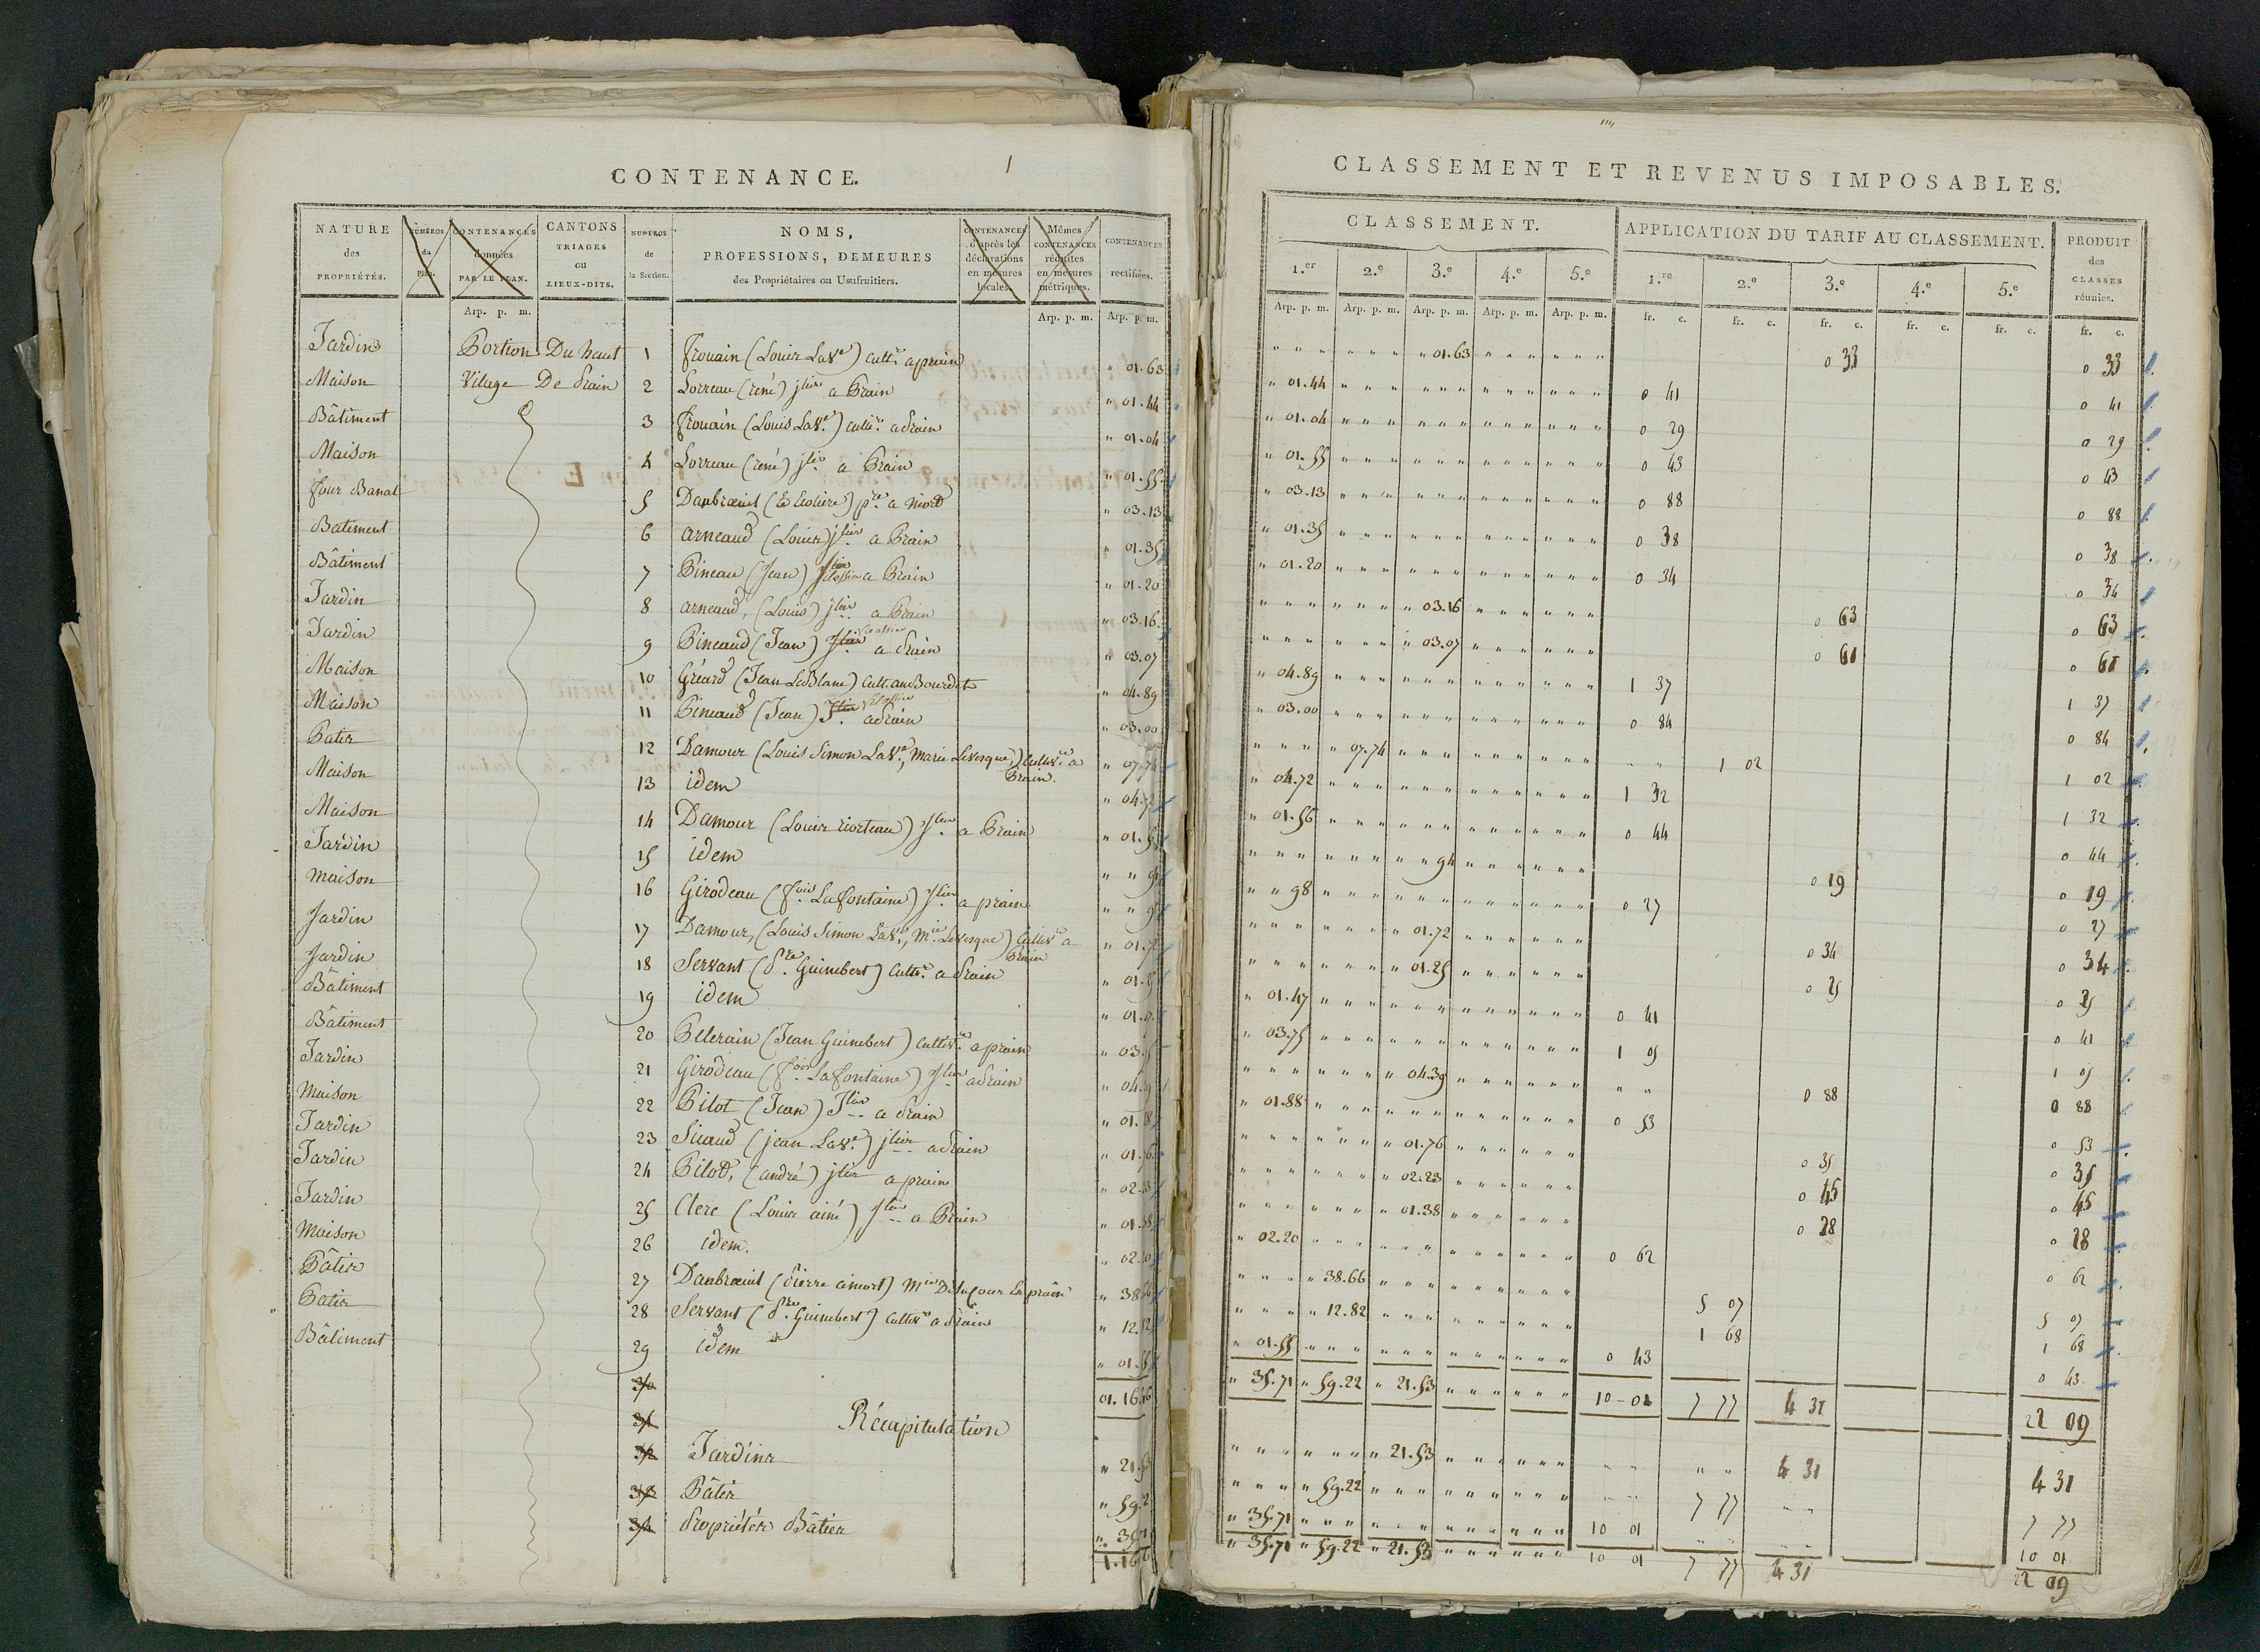 CONTENANCE.
1
NATURE des PROPRIÉTÉS.
NUMÉROS du PLAN.
CONTENANCES données PAR LE PLAN.
CANTONS TRIAGES OU LIEUX-DITS.
NUMÉROS de la Section.
NOMS, PROFESSIONS, DEMEURES des Propriétaires ou Usufruitiers.
CONTENANCES d'après les déclarations en mesures locales.
Mêmes CONTENANCES réduites en mesures métriques.
CONTENANCES rectifiées.
Arp. p. m. Arp. p. m. Arp. p. m.
Jardins Portion Du haut 1 frouain (Louis La Ve) cultr. a prain " 01.63
Maison Vilage De Prain 2 Lorreau (réné) jlier a Prain " 01.44
Bâtiment 3 frouain (Louis La Ve.) cultr. a Prain " 01.04
Maison 4 Lorreau (réné) jlier a Prain " 01.55
four Banal 5 a Niort " 03.13
Batiment 6 arneaud (Louis) jlier a Prain " 01.35
Bâtiment 7 Pineau (Jean) a Prain " 01.20
Jardin 8 arneaud, (Louis) jlier a Prain " 03.16
Jardin 9 Pineaud (Jean) Jlier a Prain " 03.07
Maison 10 Gréard (Jean LeBlanc) cult. au Bourdet " 04.89
Maison 11 Pineaud (Jean) Jlier a Prain " 03.00
Patis 12 Damour (Louis Simon La Ve., Marie Levesque,) Cultivce a Prain. " 07.74
Maison 13 idem " 04.72
Maison 14 Damour (Louis riorteau) Jlier a Prain " 01.5
Jardin 15 idem " " 9
Maison 16 Girodeau (fois Lafontaine) Jlier a prain " " 9
Jardin 17 Damour, (Louis Simon La Ve., Mie Levesque) Cultivce a Prain " 01.7
Jardin 18 Servant (Pre. Guimbert) Cultr. a Prain " 01.
Bâtiment 19 idem " 01.
Bâtiment 20 Pellerain (Jean Guimbert) Cultivr. a prain " 03.
Jardin 21 Girodeau (fois Lafontaine) Jlier a Prain " 04.
Maison 22 Pilot (Jean) Jlier a Prain " 01.8
Jardin 23 Sicaud (jean La Ve.) jlier a Prain " 01.
Jardin 24 Pilot, (andré) jlier a prain " 02.
Jardin 25 Clerc (Louis ainé) Jlier a Prain " 01.38
Maison 26 idem. " 02.20
Pâtis 27 (Pierre) " 38.66
Patis 28 Servant (Pre. Guimbert) Cultivr a Prain " 12.82
Bâtiment 29 idem " 01.55
30 01.16.46
31 Récapitulation
32 Jardins " 21.53
33 Pâtis " 59.2
34 Propriétés Bâties " 35.7
1.16.
CLASSEMENT ET REVENUS IMPOSABLES.
CLASSEMENT.
APPLICATION DU TARIF AU CLASSEMENT.
PRODUIT des CLASSES réunies.
1.er 2.e 3.e 4.e 5.e 1.re 2.e 3.e 4.e 5.e
Arp. p. m. Arp. p. m. Arp. p. m. Arp. p. m. Arp. p. m. fr. c. fr. c. fr. c. fr. c. fr. c. fr. c.
" 01.63 0 33 0 33
" 01.44 0 41 0 41
" 01.04 0 29 0 29
" 01.55 0 43 0 43
" 03.13 0 88 0 88
" 01.35 0 38 0 38
" 01.20 0 34 0 34
" 03.16 0 63 0 63
" 03.07 0 61 0 61
" 04.89 1 37 1 37
" 03.00 0 84 0 84
" 07.74 1 02 1 02
" 04.72 1 32 1 32
" 01.56 0 44 0 44
" " 94 0 19 0 19
" " 98 0 27 0 27
" 01.72 0 34 0 34
" 01.25 0 25 0 25
" 01.47 0 41 0 41
" 03.75 1 05 1 05
" 04.39 0 88 0 88
" 01.88 0 53 0 53
" 01.76 0 35 0 35
" 02.23 0 45 0 45
" 01.38 0 28 0 28
" 02.20 0 62 0 62
" 38.66 5 07 5 07
" 12.82 1 68 1 68
" 01.55 0 43 0 43
" 35.71 " 59.22 " 21.53 10-01 7 77 4 31 22 09
" 21.53 4 31 4 31
" 59.22 7 77 7 77
" 35.71 10 01 10 01
" 35.71 " 59.22 " 21.53 10 01 7 77 4 31 22 09